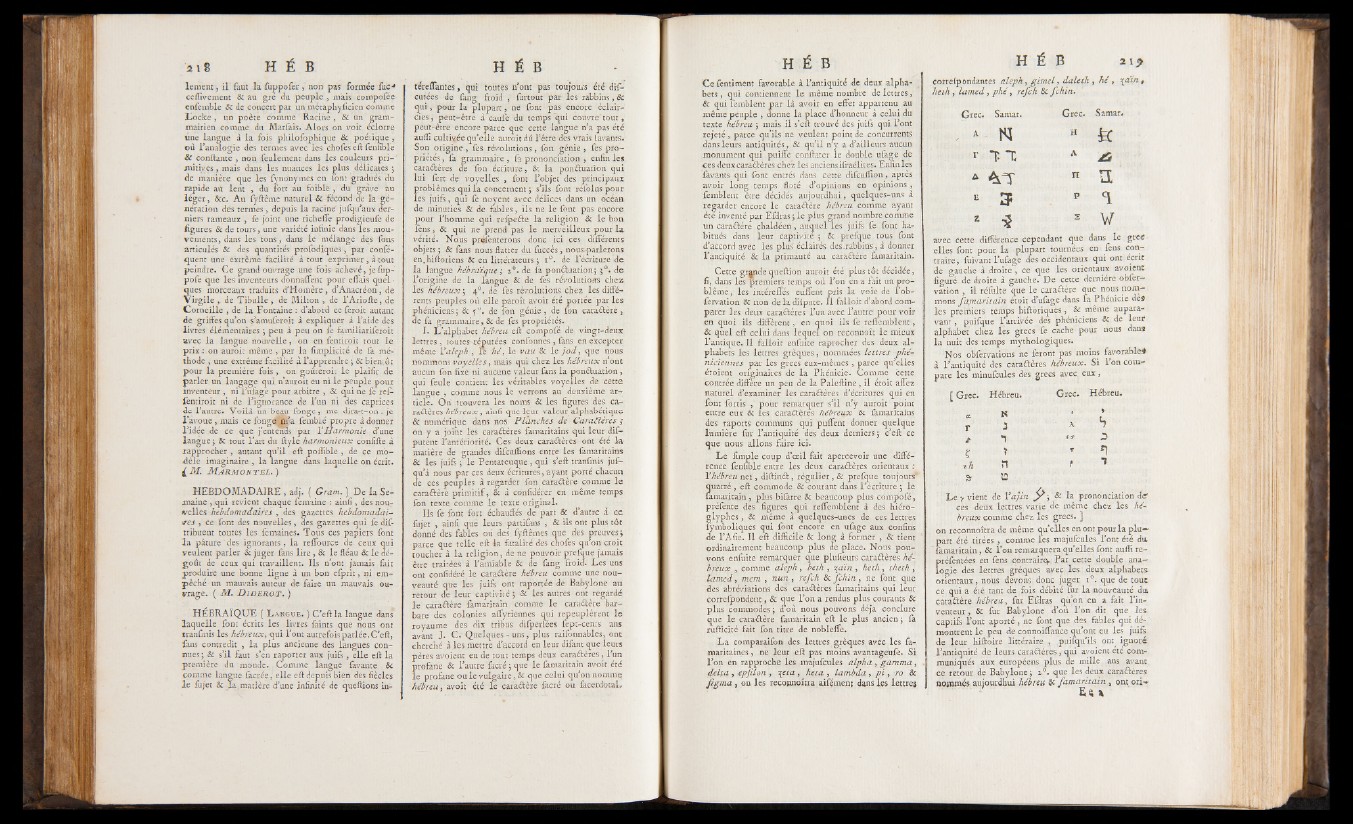 218 HÉB HÉB
lement, il faut la ſuppoſer, non pas formée ſuc-
ceſſivement & au gré du peuple, mais compoſée
enſemble & de concert par un métaphyſicien comme
Locke, un poète comme Racine, & un gram-
mairien comme du Marſais. Alors on voit éclorre
une langue à la fois philoſophique & poétique,
où l'analogie des termes avec les choſes eſt ſenſible
& conſtante, non ſeulement dans les couleurs pri-
mitives, mais dans les nuances les plus délicates;
de manière que les ſynonymes en ſont gradués du
rapide au lent, du fort au foible, du grave au
léger, &c. Au ſyſtême naturel & fécond de la gé-
nération des termes, depuis la racine juſqu'aux der-
niers rameaux, ſe joint une richeſſe prodigieuſe de
figures & de tours, une variété infinie dans les mou-
vements, dans les tons, dans le mélange des ſons
articulés & des quantités proſodiques, par conſé-
quent une extrême facilité à tout exprimer, à tout
peindre. Ce grand ouvrage une fois achevé, je ſup-
poſe que les inventeurs donnaſſent pour eſſais quel-
ques morceaux traduits d'Homère, d'Anacréon, de
Virgile, de Tibulle, de Milton, de l'Arioſte, de
Corneille, de la Fontaine: d'abord ce ſeroit autant
de griffes qu'on s'amuſeroit à expliquer à l'aide des
livres élémentaires; peu à peu on ſe familiariſeroit
avec la langue nouvelle, on en ſentiroit tout le
prix: on auroit même, par la ſimplicité de ſa mé-
thode, une extrême facilité à l'apprendre; & bientôt
pour la première fois, on goûteroit le plaiſir de
parler un langage qui n'auroit eu ni le peuple pour
inventeur, ni l'uſage pour arbitre, & qui ne ſe reſ-
ſentiroit ni de l'ignorance de l'un ni des caprices
de l'autre. Voilà un beau ſonge, me dira-t-on. je
l'avoue, mais ce ſonge m'a ſemblé propre à donner
l'idée de ce que j'entends par l'Harmonie d'une
langue; & tout l'art du ſtyle harmonieux conſiſte à
rapprocher, autant qu'il eſt poſſible, de ce mo-
dèle imaginaire, la langue dans laquelle on écrit.
( M. MARMONTEL. )
HEBDOMADAIRE, adj. ( Gram. ) De la Se-
maine, qui revient chaque ſemaine: ainſi, des nou-
velles hebdomadaires, des gazettes hebdomadai-
res, ce ſont des nouvelles, des gazettes qui ſe diſ-
tribuent toutes les ſemaines. Tous ces papiers ſont
la pâture des ignorants, la reſſource de ceux qui
veulent parler & juger ſans lire, & le fléau & le dé-
goût de ceux qui travaillent. Ils n'ont jamais fait
produire une bonne ligne à un bon eſprit, ni em-
pêché un mauvais auteur de faire un mauvais ou-
vrage. ( M. DIDEROT. )
HÉBRAÏQUE ( LANGUE. ) C'eſt la langue dans
laquelle ſont écrits les livres ſaints que nous ont
tranſmis les hébreux, qui l'ont autrefois parlée. C'eſt,
ſans contredit, la plus ancienne des langues con-
nues; & s'il faut s'en raporter aux juifs, elle eſt la
première du monde. Comme langue ſavante &
comme langue ſacrée, elle eſt depuis bien des ſiècles
le ſujet & la matière d'une infinité de queſtions in-
téreſſantes, qui toutes n'ont pas toujours été diſ-
cutées de ſang froid, ſurtout par les rabbins, &
qui, pour la plupart, ne ſont pas encore éclair-
cies, peut-être à cauſe du temps qui couvre tout,
peut-être encore parce que cette langue n'a pas été
auſſi cultivée qu'elle auroit dû l'être des vrais ſavants.
Son origine, ſes révolutions, ſon génie, ſes pro-
priétés, ſa grammaire, ſa prononciation, enfin les
caractères de ſon écriture, & la ponctuation qui
lui ſert de voyelles, ſont l'objet des principaux
problêmes qui la concernent; s'ils ſont réſolus pour
les juifs, qui ſe noyent avec délices dans un océan
de minuties & de fables, ils ne le ſont pas encore
pour l'homme qui reſpecte la religion & le bon
ſens, & qui ne prend pas le merveilleux pour la
vérité. Nous préſenterons donc ici ces différents
objets; & ſans nous flatter du ſuccès, nous parlerons
en hiſtoriens & en littérateurs; 1°. de l'écriture de
la langue hébraïque; 2°. de ſa ponctuation; 3°. de
l'origine de la langue & de ſes révolutions chez
les hébreux; 4°. de ſes révolutions chez les diffé-
rents peuples où elle paroît avoit été portée par les
phéniciens; & 5°. de ſon génie, de ſon caractère,
de ſa grammaire, & de ſes propriétés.
I. L'alphabet hébreu eſt compoſé de vingt-deux
lettres, toutes réputées conſonnes, ſans en excepter
même l'aleph, le hé, le vau & le jod, que nous
nommons voyelles, mais qui chez les hébreux n'ont
aucun ſon fixe ni aucune valeur ſans la ponctuation,
qui ſeule contient les véritables voyelles de cette
langue, comme nous le verrons au deuxième ar-
ticle. On trouvera les noms & les figures des ca-
ractères hébreux, ainſi que leur valeur alphabétique
& numérique dans nos Planches de Caractères;
on y a joint les caractères ſamaritains qui leur diſ-
putent l'antériorité. Ces deux caractères ont été la
matière de grandes diſcuſſions entre les ſamaritains
& les juifs; le Pentateuque, qui s'eſt tranſmis juſ-
qu'à nous par ces deux écritures, ayant porté chacun
de ces peuples à regarder ſon caractère comme le
caractère primitif, & à conſidérer en même temps
ſon texte comme le texte original.
Ils ſe ſont fort échauffés de part & d'autre à ce
ſujet, ainſi que leurs partiſans, & ils ont plus tôt
donné des fables ou des ſyſtêmes que des preuves;
parce que telle eſt la fatalité des choſes qu'on croit
toucher à la religion, de ne pouvoir preſque jamais
être traitées à l'amiable & de ſang froid. Les uns
ont conſidéré le caractère hébreu comme une nou-
veauté que les juifs ont raportée de Babylone au
retour de leur captivité; & les autres ont regardé
le caractère ſamaritain comme le caractère bar-
bare des colonies aſſyriennes qui repeuplèrent le
royaume des dix tribus diſperſées ſept-cents ans
avant J. C. Quelques-uns, plus raiſonnables, ont
cherché à les mettre d'accord en leur diſant que leurs
pères avoient eu de tout temps deux caractères, l'un
profane & l'autre ſacré; que le ſamaritain avoit été
le profane ou le vulgaire, & que celui qu'on nomme
hébreu, avoit été le caractère ſacré ou ſacerdotal.
HÉB HÉB 219
Ce ſentiment favorable à l'antiquité de deux alpha-
bets, qui contiennent le même nombre de lettres,
& qui ſemblent par là avoir en effet appartenu au
même peuple, donne la place d'honneur à celui du
texte hébreu; mais il s'eſt trouvé des juifs qui l'ont
rejeté, parce qu'ils ne veulent point de concurrents
dans leurs antiquités, & qu'il n'y a d'ailleurs aucun
monument qui puiſſe conſtater le double uſage de
ces deux caractères chez les anciens iſraélites. Enfin les
ſavants qui ſont entrés dans cette diſcuſſion, après
avoir long temps floté d'opinions en opinions,
ſemblent être décidés aujourdhui, quelques-uns à
regarder encore le caractère hébreu comme ayant
été inventé par Eſdras; le plus grand nombre comme
un caractère chaldéen, auquel les juifs ſe ſont ha-
bitués dans leur captivité; & preſque tous ſont
d'accord avec les plus éclairés des rabbins, à donner
l'antiquité & la primauté au caractère ſamaritain.
Cette grande queſtion auroit été plus tôt décidée,
ſi, dans les premiers temps où l'on en a fait un pro-
blême, les intéreſſés euſſent pris la voie de l'ob-
ſervation & non de la diſpute. Il falloit d'abord com-
parer les deux caractères l'un avec l'autre pour voir
en quoi ils diffèrent, en quoi ils ſe reſſemblent,
& quel eſt celui dans lequel on reconnoît le mieux
l'antique. Il falloit enſuite raprocher des deux al-
phabets les lettres grèques, nommées lettres phé-
niciennes par les grecs eux-mêmes, parce qu'elles
étoient originaires de la Phénicie. Comme cette
contrée diffère un peu de la Paleſtine, il étoit aſſez
naturel d'examiner les caractères d'écritures qui en
ſont ſortis, pour remarquer s'il n'y auroit point
entre eux & les caractères hébreux & ſamaritains
des raports communs qui puſſent donner quelque
lumière ſur l'antiquité des deux derniers; c'eſt ce
que nous allons faire ici.
Le ſimple coup d'œil fait apercevoir une diffé-
rence ſenſible entre les deux caractères orientaux:
l'hébreu net, diſtinct, régulier, & preſque toujours
quarré, eſt commode & courant dans l'écriture; le
ſamaritain, plus biſarre & beaucoup plus compoſé,
préſente des figures qui reſſemblent à des hiéro-
glyphes, & même à quelques-unes de ces lettres
ſymboliques qui ſont encore en uſage aux confins
de l'Aſie. Il eſt difficile & long à former, & tient
ordinairement beaucoup plus de place. Nous pou-
vons enſuite remarquer que pluſieurs caractères hé-
breux, comme aleph, beth, zaïn, heth, theth,
lamed, mem, nun, reſch & ſchin, ne ſont que
des abréviations des caractères ſamaritains qui leur
correſpondent, & que l'on a rendus plus courants &
plus commodes; d'où nous pouvons déja conclure
que le caractère ſamaritain eſt le plus ancien; ſa
ruſticité fait ſon titre de nobleſſe.
La comparaiſon des lettres grèques avec les ſa-
maritaines, ne leur eſt pas moins avantageuſe. Si
l'on en rapproche les majuſcules alpha, gamma,
delta, epſilon, zeta, heta, lambda, pi, ro &
ſigma, on les reconnoîtra aiſément dans les lettres
correſpondantes aleph, gimel, daleth, hé, zaïn,
heth, lamed, phé, reſch & ſchin.
Grec. Samar. Grec. Samar.
A H
Γ Λ
Δ Π
E P
Z Σ
avec cette différence cependant que dans le grec
elles ſont pour la plupart tournées en ſens con-
traire, ſuivant l'uſage des occidentaux qui ont écrit
de gauche à droite, ce que les orientaux avoient
figuré de droite à gauche. De cette dernière obſer-
vation, il réſulte que le caractère que nous nom-
mons ſamaritain étoit d'uſage dans la Phénicie dès
les premiers temps hiſtoriques, & même aupara-
vant, puiſque l'arrivée des phéniciens & de leur
alphabet chez les grecs ſe cache pour nous dans
la nuit des temps mythologiques.
Nos obſervations ne ſeront pas moins favorables
à l'antiquité des caractères hébreux. Si l'on com-
pare les minuſcules des grecs avec eux,
[ Grec. Hébreu. Grec. Hébreu.
α א
ר
ח ר
ט
Le γ vient de l'ajin ע; & la prononciation de
ces deux lettres varie de même chez les hé-
breux comme chez les grecs. ]
on reconnoîtra de même qu'elles en ont pour la plu-
part été tirées, comme les majuſcules l'ont été du
ſamaritain, & l'on remarquera qu'elles ſont auſſi re-
préſentées en ſens contraire. Par cette double ana-
logie des lettres grèques avec les deux alphabets
orientaux, nous devons donc juger 1°. que de tout
ce qui a été tant de fois débité ſur la nouveauté du
caractère hébreu, ſur Eſdras qu'on en a fait l'in-
venteur, & ſur Babylone d'où l'on dit que les
captifs l'ont aporté, ne ſont que des fables qui dé-
montrent le peu de connoiſſance qu'ont eu les juifs
de leur hiſtoire littéraire, puiſqu'ils ont ignoré
l'antiquité de leurs caractères, qui avoient été com-
muniqués aux européens plus de mille ans avant
ce retour de Babylone; 2°. que les deux caractères
nommés aujourdhui hébreu & ſamaritain, ont ori-